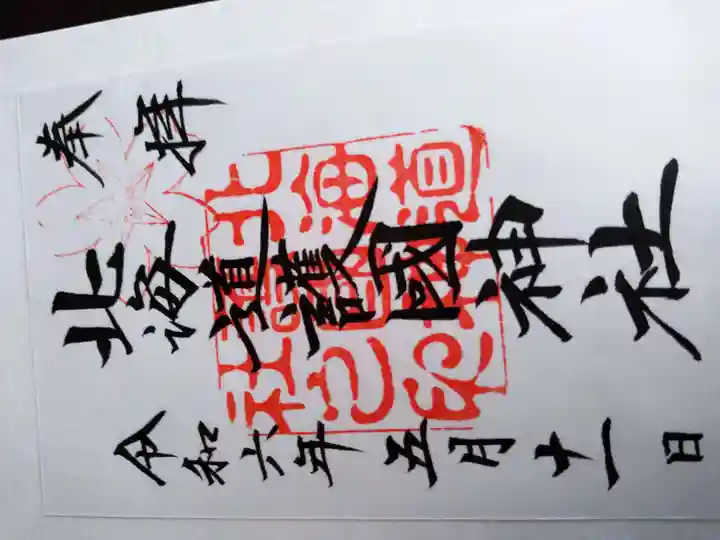 奉拝
北海道護國神社
令和六年五月十一日
北海道
護國神
社之印